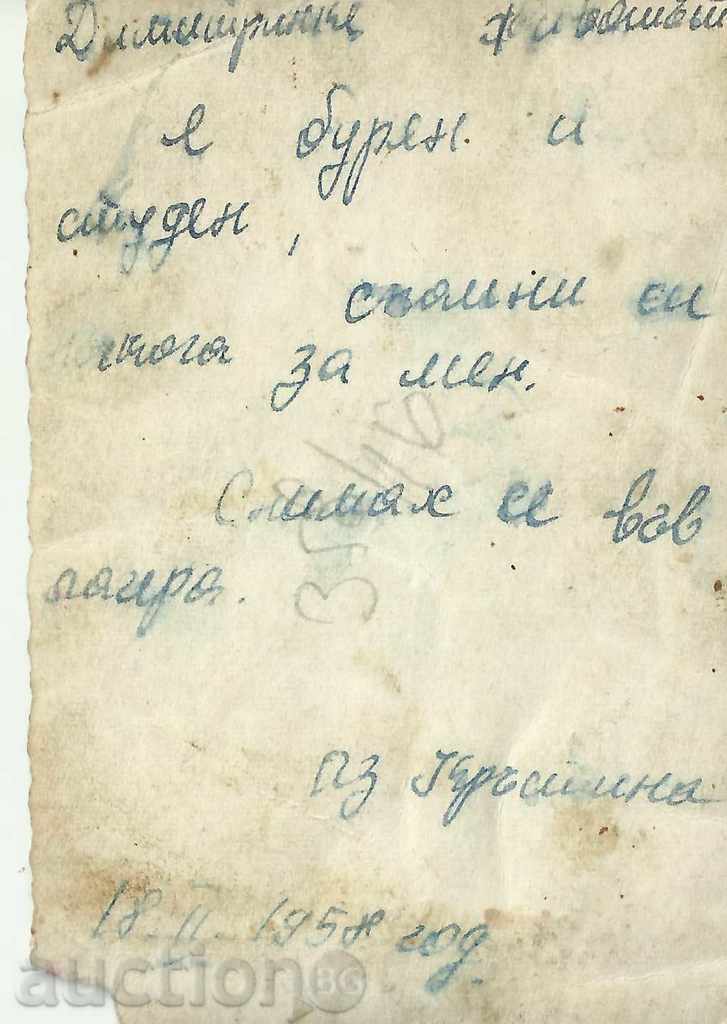 Димитринке животът
е бурен и
студен,
спомни си
някога за мен.
Снимах се във
лагера.
Аз Кръстина
18.II.1958 год.
auction BG